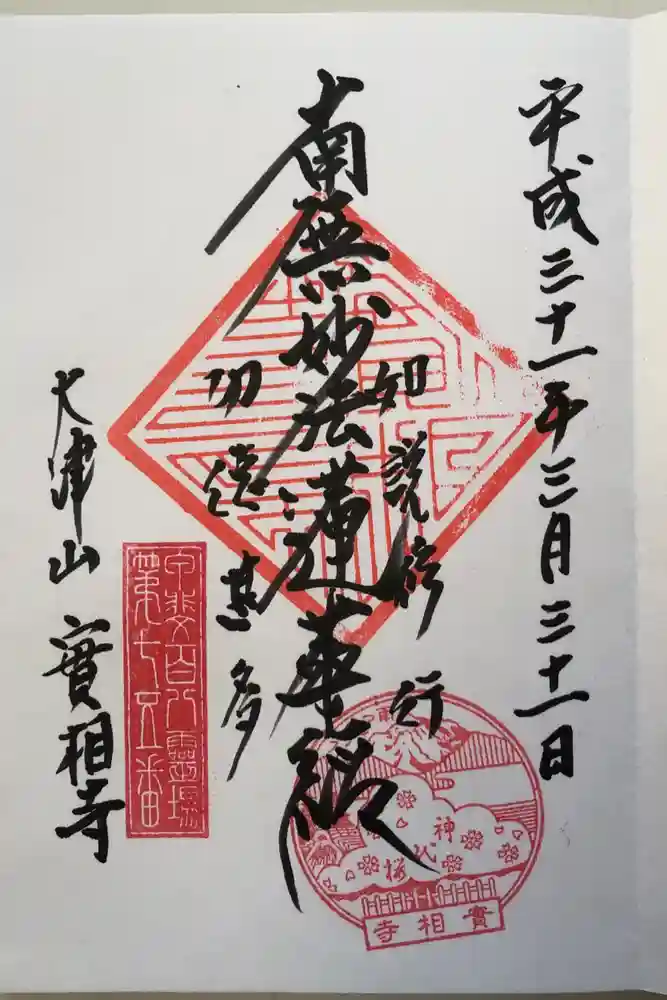 平成三十一年三月三十一日
如説修行
南無妙法蓮華経
功徳甚多
甲斐百八霊場
第七五番
大津山 實相寺
神代桜
實相寺